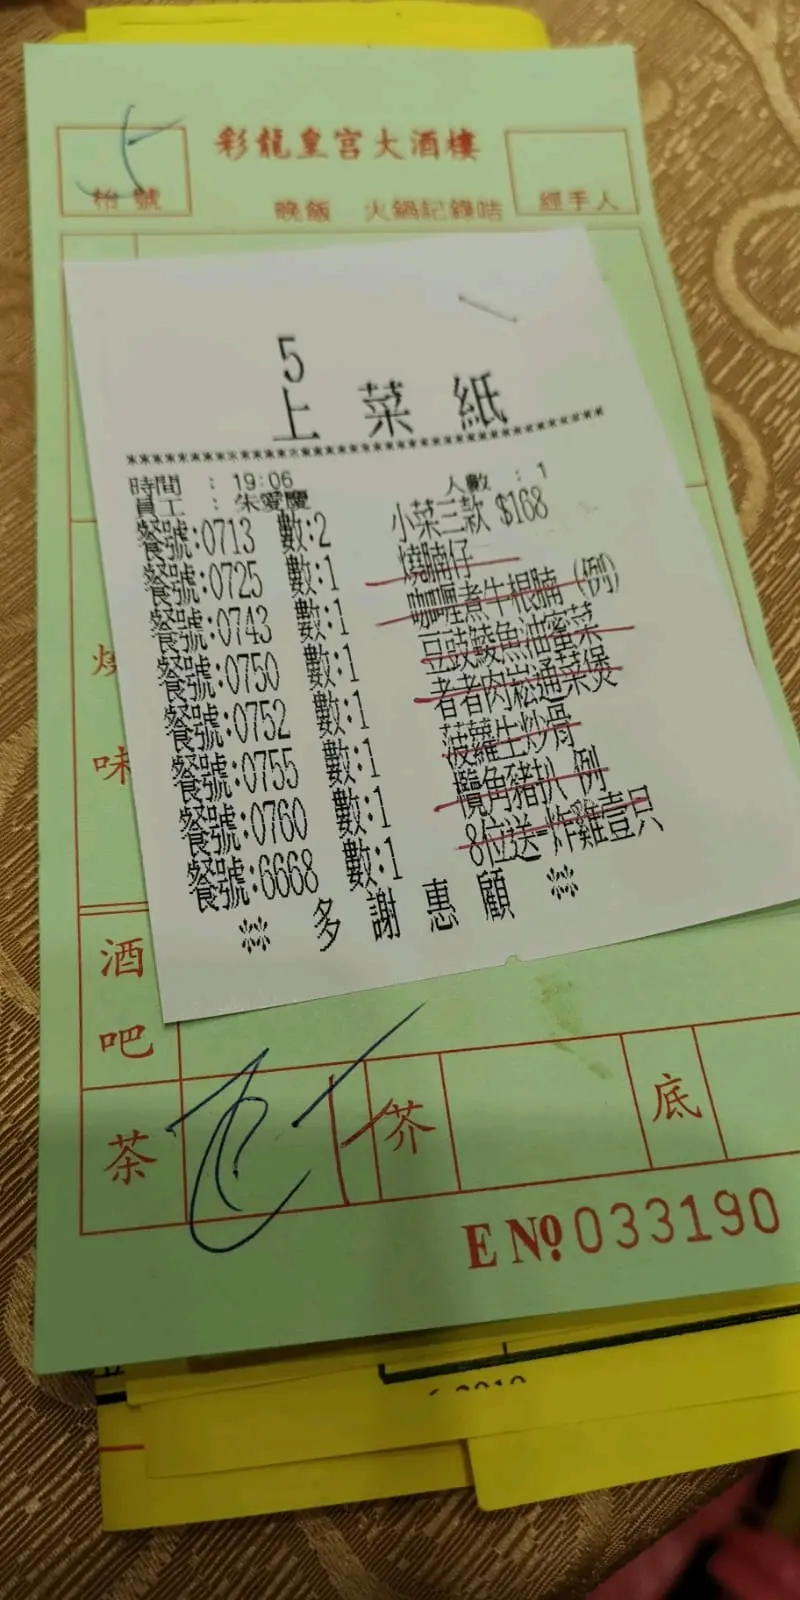 5
彩龍皇宮大酒樓
枱號
晚飯 火鍋記錄咭
經手人
5
上菜紙
************************************
時間 : 19:06 人數 : 1
員工 : 朱愛慶
餐號:0713 數:2 小菜三款 $168
餐號:0725 數:1 燒腩仔
餐號:0743 數:1 咖喱煮牛根腩 (例)
餐號:0750 數:1 豆豉鯪魚油蜜菜
餐號:0752 數:1 者者肉崧通菜煲
餐號:0755 數:1 菠蘿生炒骨
餐號:0760 數:1 欖角豬扒 例
餐號:6668 數:1 8位送-炸雞壹只
※ 多謝惠顧 ※
燒味
酒吧
茶
芥
底
E Nº 033190